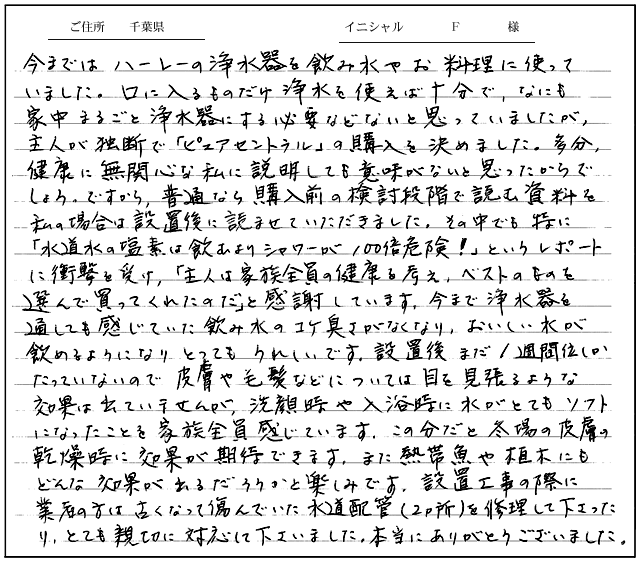 ご住所 千葉県 イニシャル F 様
今までは ハーレーの浄水器を飲み水や お 料理に使って
いました。口に入るものだけ 浄水を使えば十分で、なにも
家中 まるごと 浄水器にする必要などないと思っていましたが、
主人が 独断で「ピュアセントラル」の購入を決めました。多分、
健康に 無関心な私に 説明しても 意味がないと思ったからで
しょう。ですから、普通なら 購入前の検討段階で読む資料を
私の場合は設置後に読ませていただきました。その中でも 特に
「水道水の塩素は飲むよりシャワーが 100倍危険!」というレポート
に衝撃を受け、「主人は家族全員の健康を考え、ベストのものを
選んで買ってくれたのだ」と感謝しています。今まで浄水器を
通しても感じていた飲み水のコケ臭さがなくなり、おいしい水が
飲めるようになり とっても うれしいです。設置後 まだ1週間位しか
たっていないので 皮膚や毛髪などについては目を見張るような
効果は出ていませんが、洗顔時や入浴時に水がとてもソフト
になったことを 家族全員感じています。この分だと 冬場の皮膚の
乾燥時に 効果が期待できます。また熱帯魚や植木にも
どんな効果が出るだろうかと楽しみです。設置工事の際に
業者の方は古くなって傷んでいた水道配管(2ヶ所)を修理して下さった
り、とても親切に対応して下さいました。本当にありがとうございました。